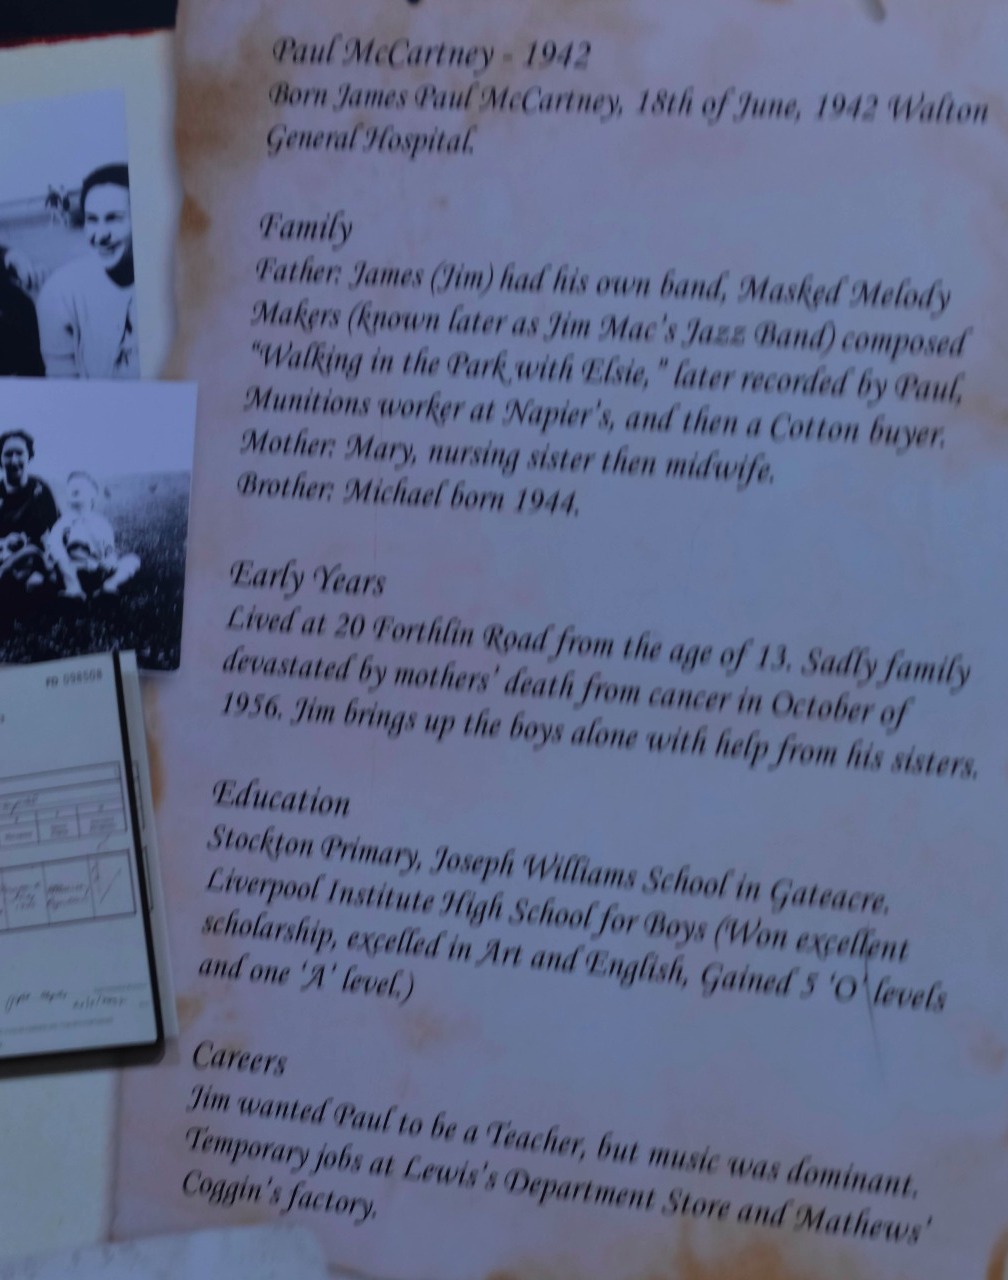 Paul McCartney - 1942
Born James Paul McCartney, 18th of June, 1942 Walton
General Hospital.
Family
Father: James (Jim) had his own band, Masked Melody
Makers (known later as Jim Mac's Jazz Band) composed
"Walking in the Park with Elsie," later recorded by Paul,
Munitions worker at Napier's, and then a Cotton buyer.
Mother: Mary, nursing sister then midwife.
Brother: Michael born 1944.
Early Years
Lived at 20 Forthlin Road from the age of 13. Sadly family
devastated by mothers' death from cancer in October of
1956. Jim brings up the boys alone with help from his sisters.
Education
Stockton Primary, Joseph Williams School in Gateacre.
Liverpool Institute High School for Boys (Won excellent
scholarship, excelled in Art and English, Gained 5 'O' levels
and one 'A' level.)
Careers
Jim wanted Paul to be a Teacher, but music was dominant.
Temporary jobs at Lewis's Department Store and Mathews'
Coggin's factory.